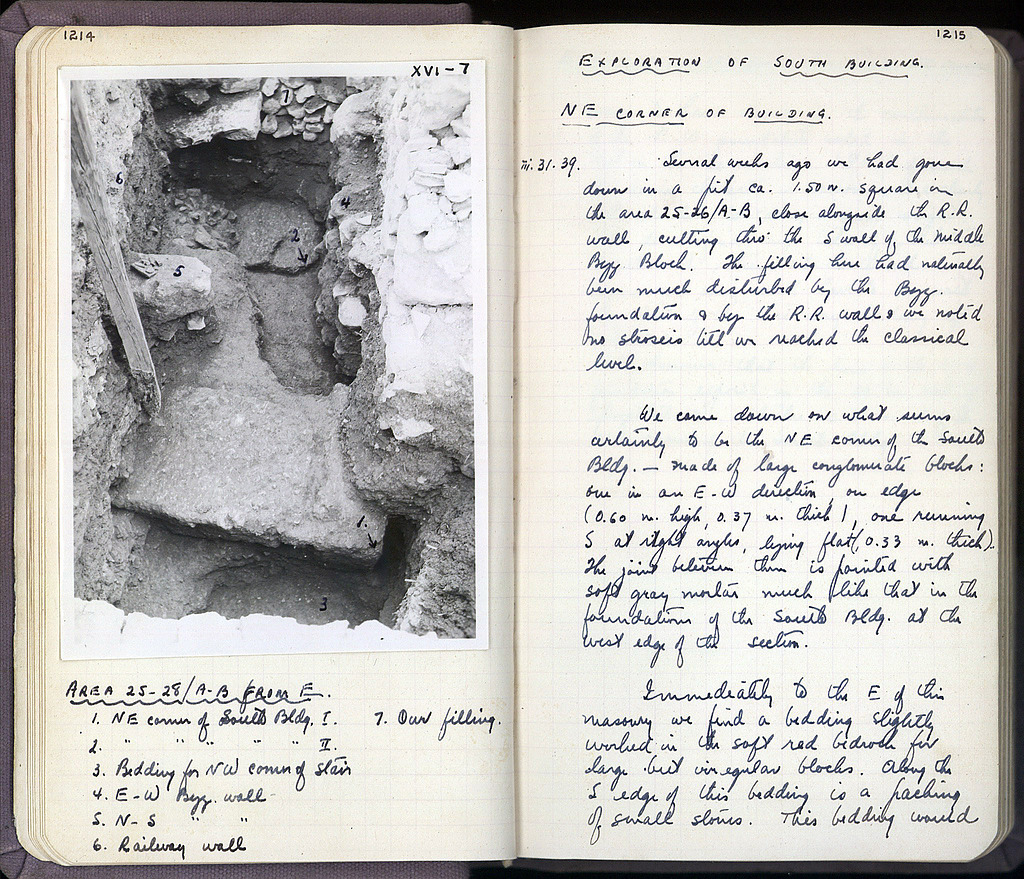 1214
XVI-7
7
6
4
2
5
1.
3
AREA 25-28/A-B FROM E.
1. NE corner of South Bldg. I.
2. " " " " " II.
3. Bedding for NW corner of stair
4. E-W Byz. wall
5. N-S " "
6. Railway wall
7. Our filling.
1215
EXPLORATION OF SOUTH BUILDING.
NE CORNER OF BUILDING.
iii.31.39. Several weeks ago we had gone
down in a pit ca. 1.50 m. square in
the area 25-26/A-B, close alongside the R.R.
wall, cutting thro' the S wall of the Middle
Byz. Block. The filling here had naturally
been much disturbed by the Byz.
foundation & by the R.R. wall & we noted
no stroseis till we reached the classical
level.
We came down on what seems
certainly to be the NE corner of the South
Bldg. — made of large conglomerate blocks:
one in an E-W direction, on edge
(0.60 m. high, 0.37 m. thick), one running
S at right angles, lying flat (0.33 m. thick).
The joint between them is pointed with
soft gray mortar much like that in the
foundation of the South Bldg. at the
west edge of the section.
Immediately to the E of this
masonry we find a bedding slightly
worked in the soft red bedrock for
large but irregular blocks. Along the
S edge of this bedding is a packing
of small stones. This bedding would